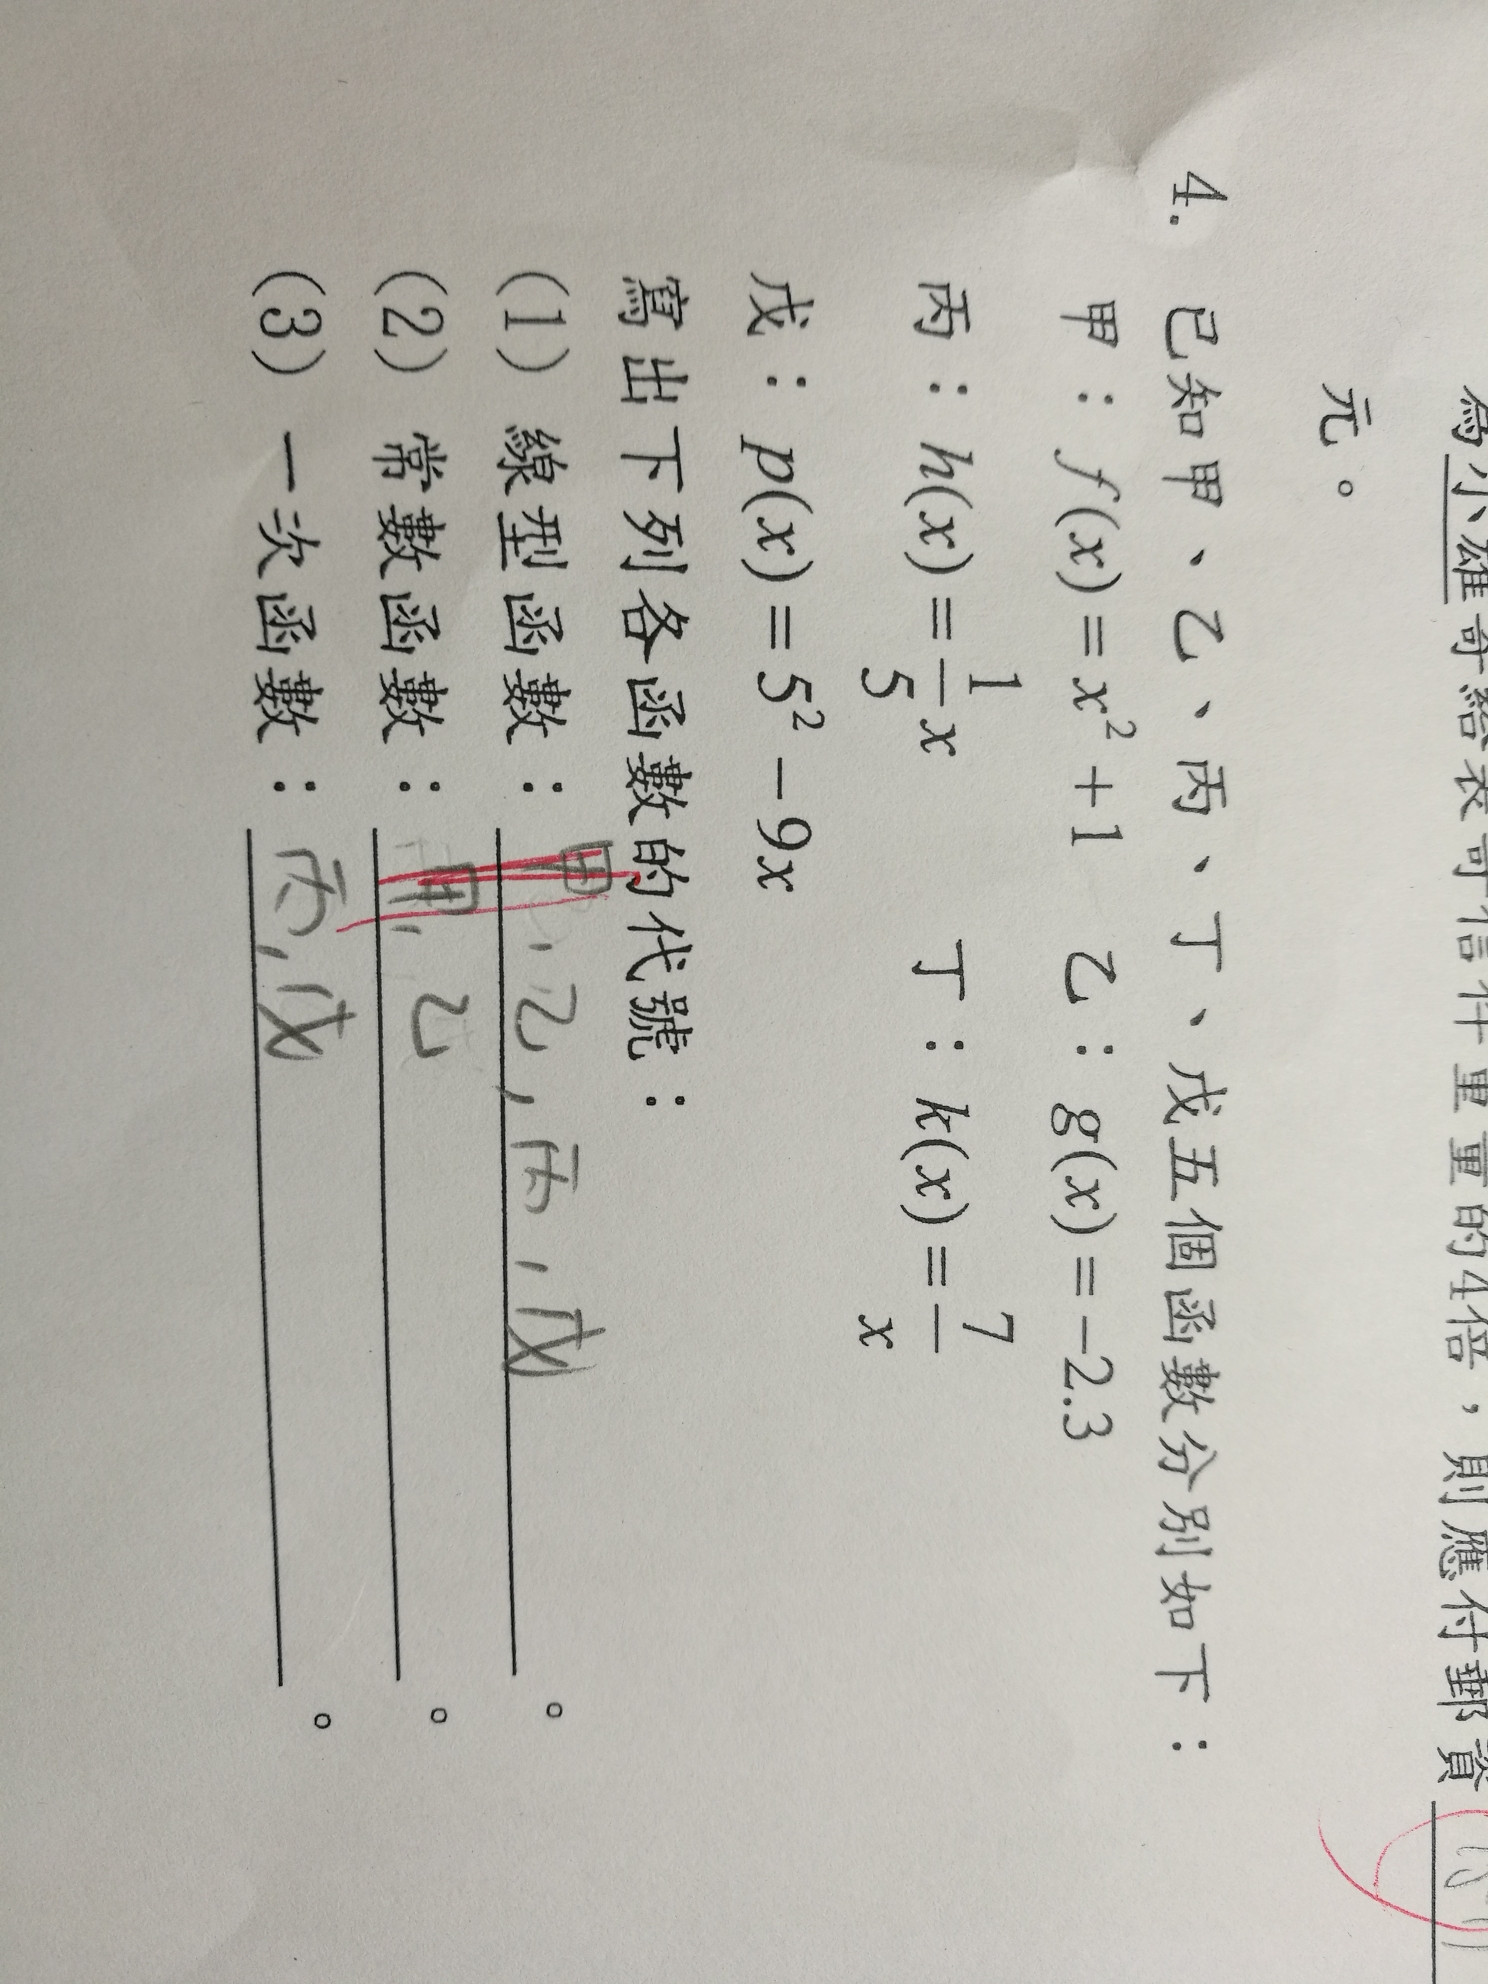 為小雄寄給表哥信件重量的4倍，則應付郵資
元。
4. 已知甲、乙、丙、丁、戊五個函數分別如下：
甲：f(x)=x²+1 乙：g(x)=-2.3
丙：h(x)=1/5x 丁：k(x)=7/x
戊：p(x)=5²-9x
寫出下列各函數的代號：
(1) 線型函數：甲,乙,丙,戊。
(2) 常數函數：甲,乙。
(3) 一次函數：丙,戊。